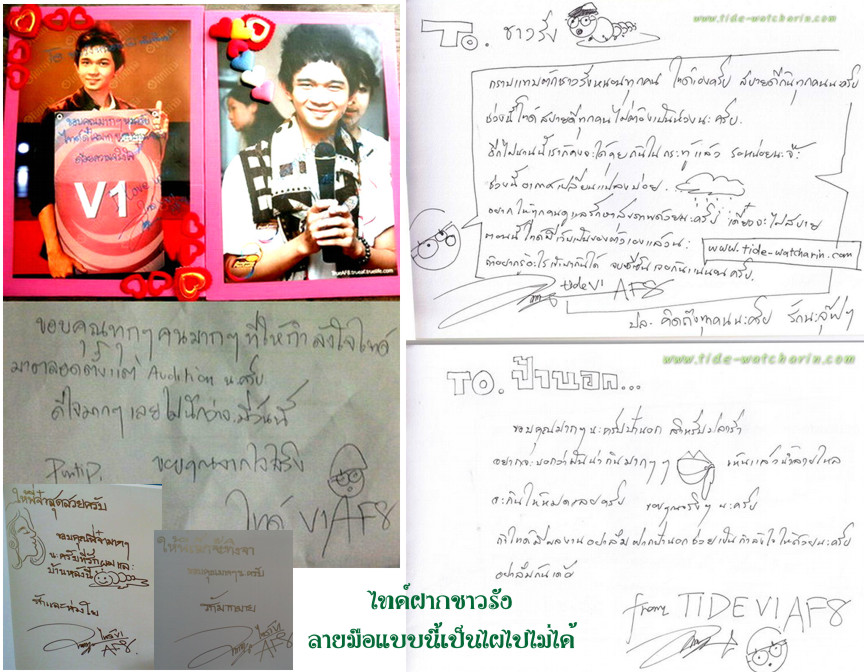 V1
www.tide-watcharin.com
TO. ชาวรัง
กราบแทบตักชาวรังหนอนทุกคน ไทด์เองครับ สบายดีกันทุกคนนะครับ
ช่วงนี้ไทด์สบายดีทุกคนไม่ต้องเป็นห่วงนะครับ.
อีกไม่นานนี้เราก็คงจะได้คุยกันในกระทู้แล้ว รอหน่อยนะจ๊ะ
ช่วงนี้อากาศเปลี่ยนแปลงบ่อย.
อยากให้ทุกคนดูแลรักษาสุขภาพด้วยนะครับ เดี๋ยวจะไม่สบาย
ตอนนี้ไทด์มีเว็บเป็นของตัวเองแล้วนะ www.tide-watcharin.com
ถ้าอยากรู้อะไรเข้ามากันได้ เจอกันแน่นอนครับ.
tide V1 AF8
ปล. คิดถึงทุกคนนะครับ รักนะจุ๊บๆ
ขอบคุณทุกๆ คนมากๆ ที่ให้กำลังใจไทด์
มาตลอดตั้งแต่ Audition นะครับ
ดีใจมากๆ เลยไม่นึกว่าจะมีวันนี้
ขอบคุณจากใจจริง
ไทด์ V1 AF8
www.tide-watcharin.com
TO. ป้านอก...
ขอบคุณมากๆ นะครับป้านอก สำหรับปลาร้า
อยากจะบอกว่ามันน่ากินมากๆๆ เห็นแล้วน้ำลายไหล
จะกินให้หมดเลยครับ ขอบคุณจริงๆ นะครับ
ถ้าไทด์มีผลงานอย่าลืมฝากป้านอกช่วยเป็นกำลังใจให้ด้วยนะครับ
อย่าลืมกันเด้อ
from TIDE V1 AF8
ให้พี่จ๋าสุดสวยครับ
ขอบคุณพี่จ๋ามากๆ
นะครับที่รักผมและ
บ้านหลังนี้
รักและห่วงใย
ไทด์ V1
AF8.
ขอบคุณมากๆ นะครับ
AF8
ไทด์ฝากชาวรัง
ลายมือแบบนี้เป็นไผไปไม่ได้